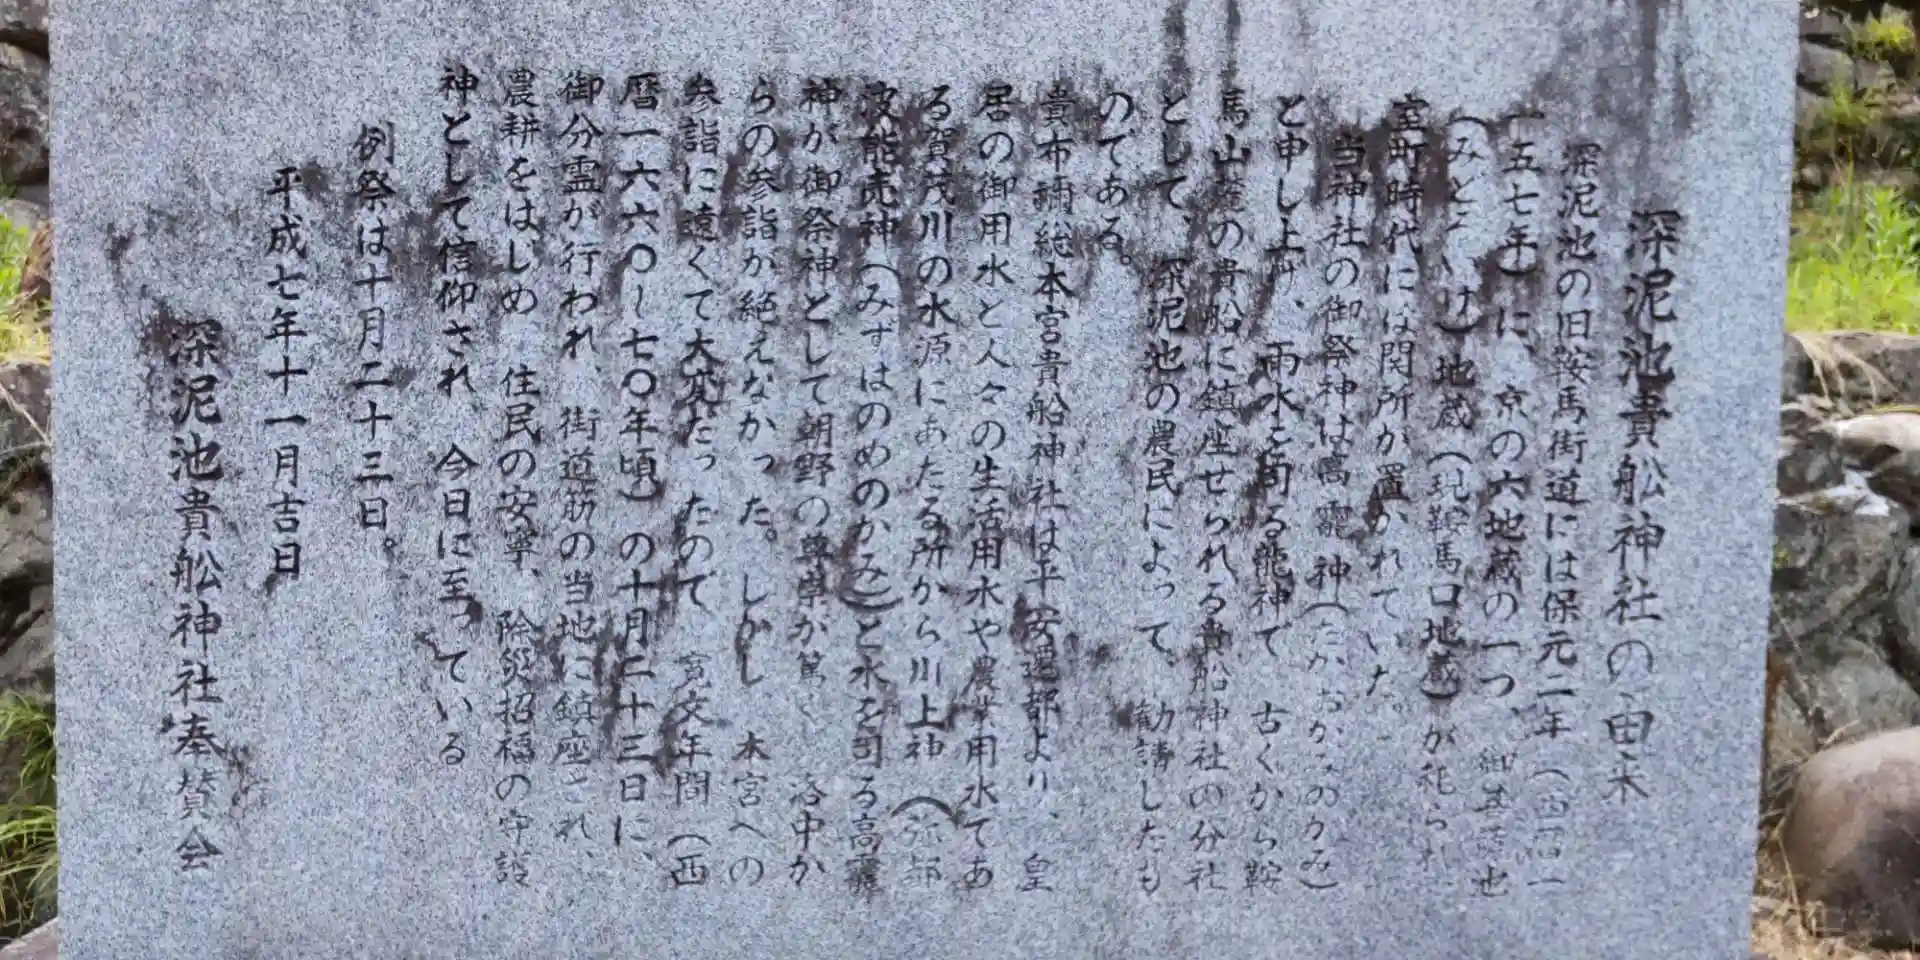 深泥池貴舩神社の由来
深泥池の旧鞍馬街道には保元二年（西暦一
一五七年）に、京の六地蔵の一つ、御菩薩池
（みどろいけ）地蔵（現鞍馬口地蔵）が祀られ
室町時代には関所が置かれていた。
当神社の御祭神は高龗神（たかおかみのかみ）
と申し上げ、雨水を司る龍神で 古くから鞍
馬山麓の貴船に鎮座せられる貴船神社の分社
として、深泥池の農民によって、勧請したも
のである。
貴布禰総本宮貴船神社は平安遷都より、皇
居の御用水と人々の生活用水や農業用水であ
る賀茂川の水源にあたる所から川上神（弥都
波能売神（みずはのめのかみ）と水を司る高龗
神が御祭神として朝野の尊崇が篤く 洛中か
らの参詣が絶えなかった。しかし 本宮への
参詣に遠くて大変だったので 寛文年間（西
暦一六六〇～七〇年頃）の十月二十三日に、
御分霊が行われ、街道筋の当地に鎮座され、
農耕をはじめ 住民の安寧、除災招福の守護
神として信仰され 今日に至っている
例祭は十月二十三日。
平成七年十一月吉日
深泥池貴舩神社奉賛会